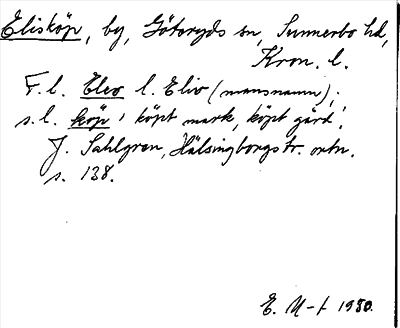 Elisköp, by, Göteryds sn, Sunnerbo hd,
Kron. l.
F. l. Elev l. Eliv (mansnamn);
s. l. köp 'köpt mark, köpt gård'.
J. Sahlgren, Hälsingborgstr. ortn.
s. 138.
E. M-t 1950.